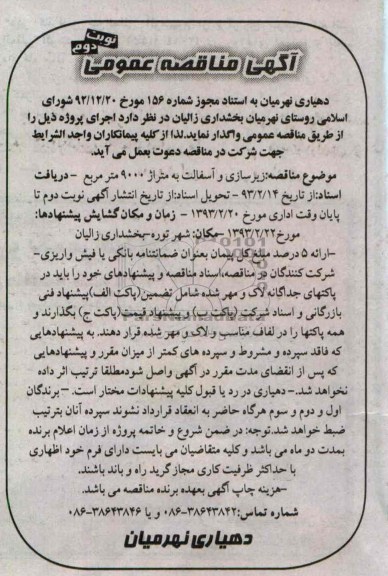 نوبت دوم
آگهی مناقصه عمومی
دهیاری نهرمیان به استناد مجوز شماره ۱۵۶ مورخ ۹۲/۱۲/۲۰ شورای
اسلامی روستای نهرمیان بخشداری زالیان در نظر دارد اجرای پروژه ذیل را
از طریق مناقصه عمومی واگذار نماید.لذا از کلیه پیمانکاران واجد الشرایط
جهت شرکت در مناقصه دعوت بعمل می آید.
موضوع مناقصه:زیرسازی و آسفالت به متراژ ۹۰۰۰ متر مربع - دریافت
اسناد:از تاریخ ۹۳/۲/۱۴ - تحویل اسناد:از تاریخ انتشار آگهی نوبت دوم تا
پایان وقت اداری مورخ ۱۳۹۳/۲/۲۰ - زمان و مکان گشایش پیشنهادها:
مورخ۱۳۹۳/۲/۲۲ -مکان: شهر توره-بخشداری زالیان
-ارائه ۵ درصد مبلغ کل پیمان بعنوان ضمانتنامه بانکی یا فیش واریزی-
شرکت کنندگان در مناقصه،اسناد مناقصه و پیشنهادهای خود را باید در
پاکتهای جداگانه لاک و مهر شده شامل تضمین(پاکت الف)پیشنهاد فنی
بازرگانی و اسناد شرکت (پاکت ب) و پیشنهاد قیمت(پاکت ج) بگذارند و
همه پاکتها را در لفاف مناسب و لاک و مهر شده قرار دهند. به پیشنهادهایی
که فاقد سپرده و مشروط و سپرده های کمتر از میزان مقرر و پیشنهادهایی
که پس از انقضای مدت مقرر در آگهی واصل شودمطلقا ترتیب اثر داده
نخواهد شد.- دهیاری در رد یا قبول کلیه پیشنهادات مختار است. - برندگان
اول و دوم و سوم هرگاه حاضر به انعقاد قرارداد نشوند سپرده آنان بترتیب
ضبط خواهد شد.توجه: در ضمن شروع و خاتمه پروژه از زمان اعلام برنده
بمدت دو ماه می باشد و کلیه متقاضیان می بایست دارای فرم خود اظهاری
با حداکثر ظرفیت کاری مجاز گرید راه و باند باشند.
-هزینه چاپ آگهی بعهده برنده مناقصه می باشد.
شماره تماس:۳۸۶۴۳۸۴۲-۰۸۶ و یا ۳۸۶۴۳۸۴۶-۰۸۶
دهیاری نهرمیان